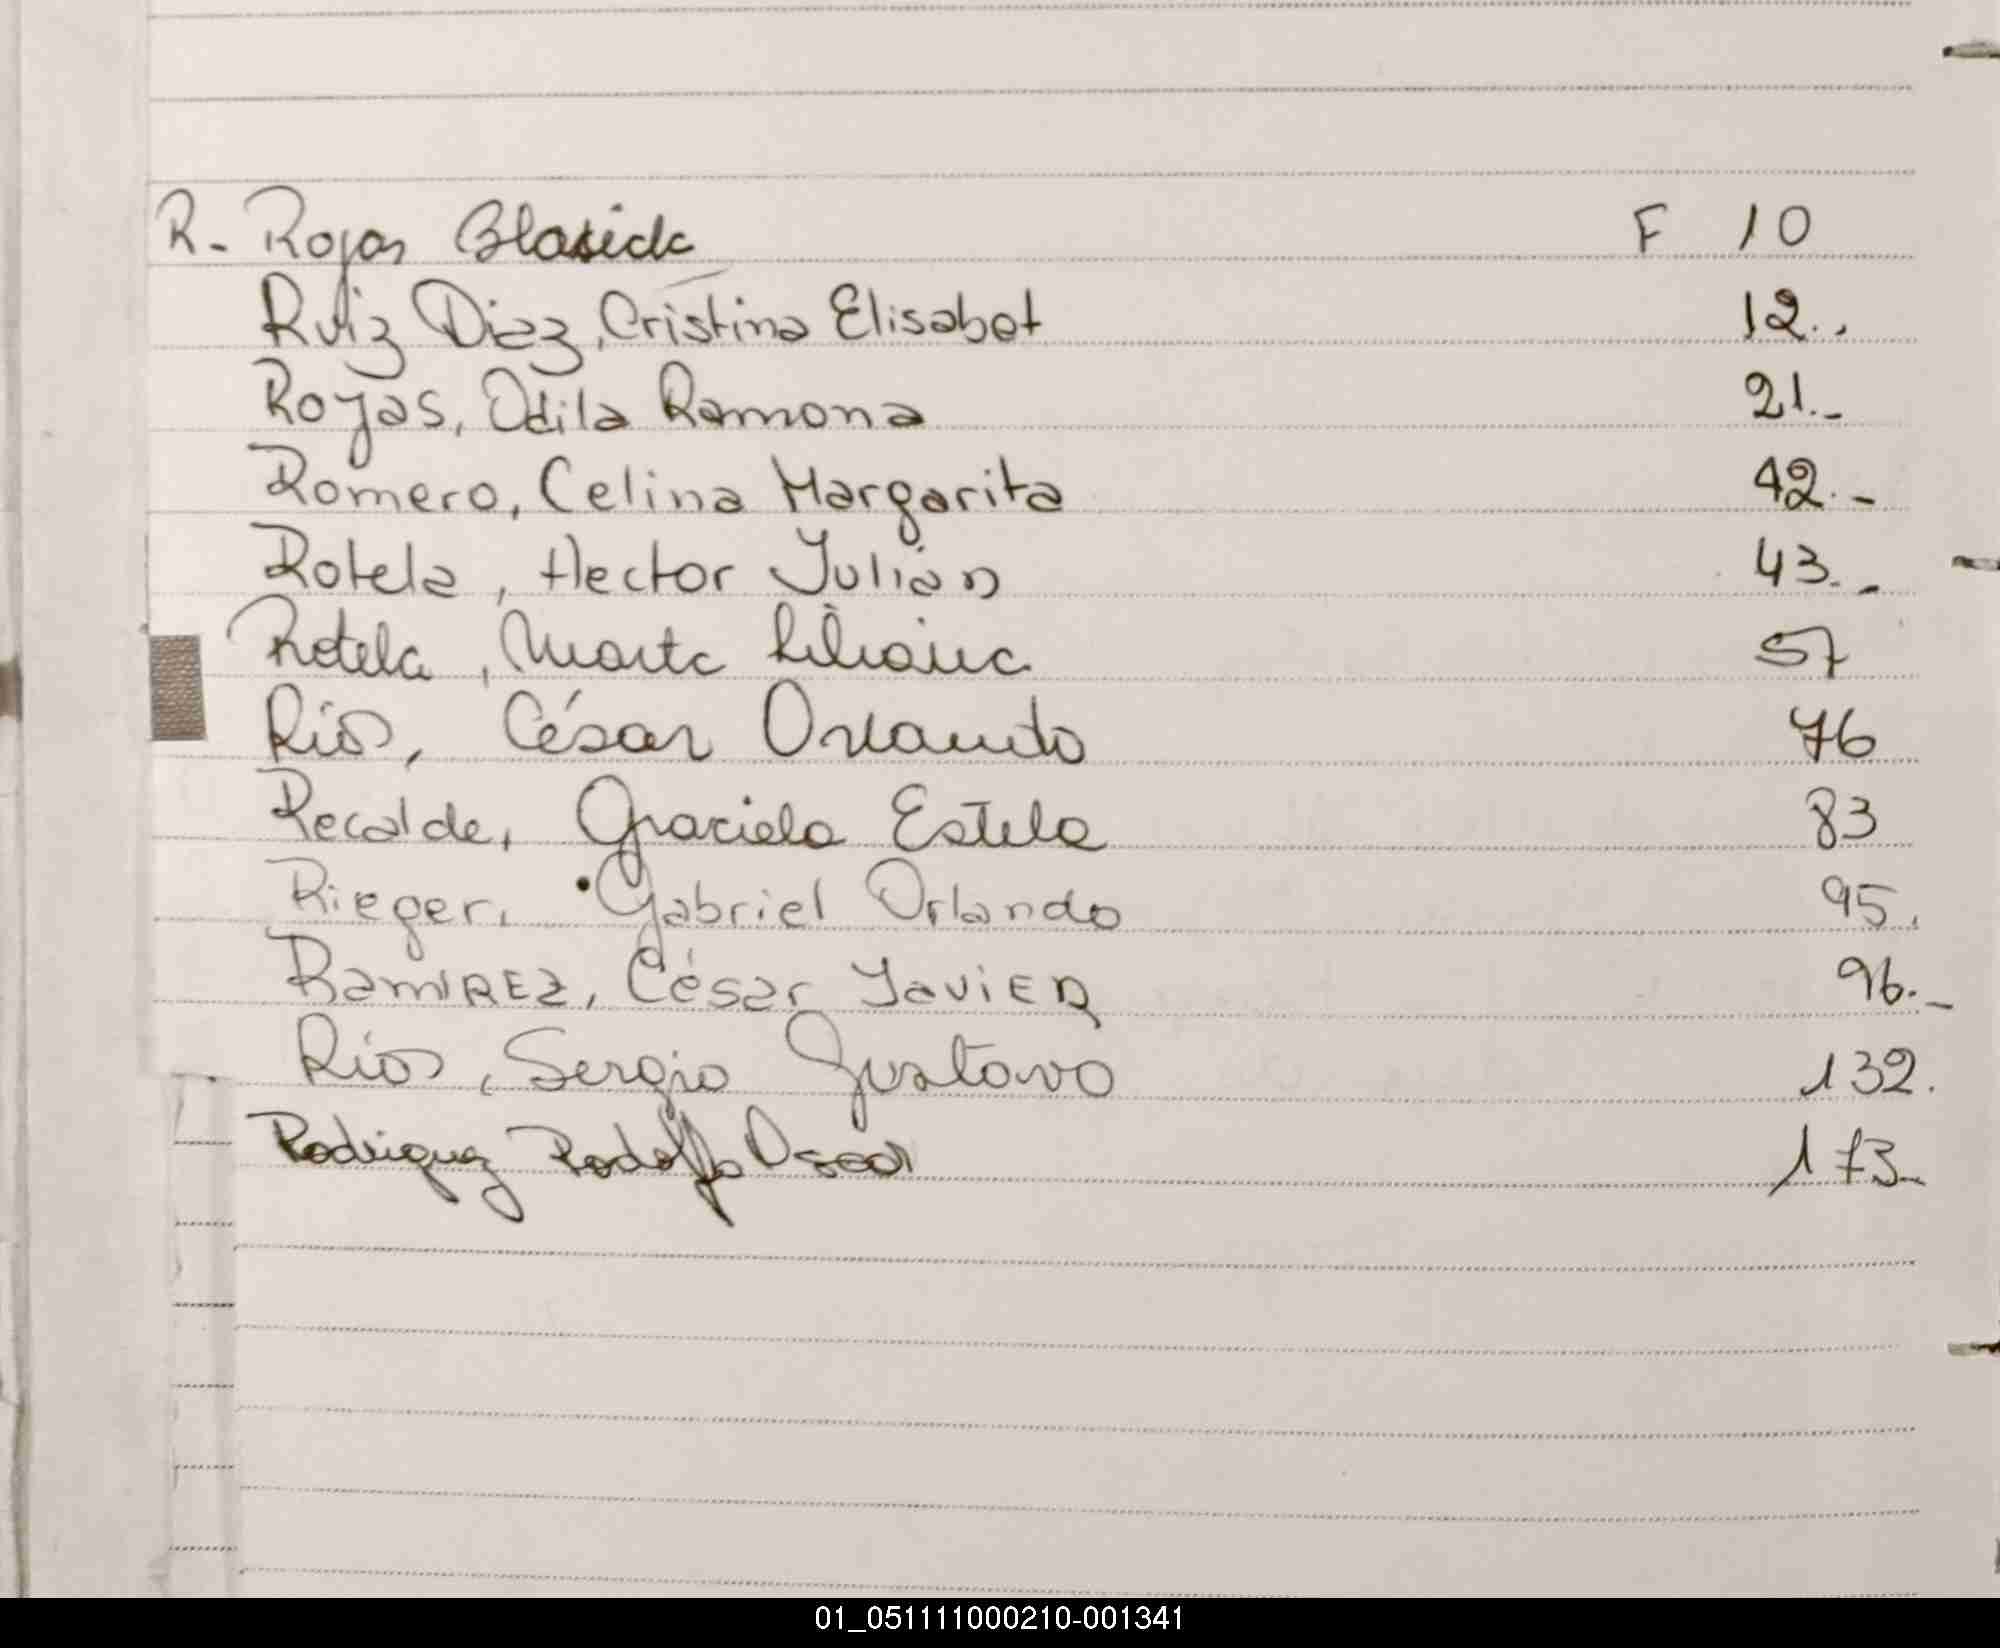 R. Rojas Blasida F 10
Ruiz Diaz, Cristina Elisabet 12..
Rojas, Odila Ramona 21.-
Romero, Celina Margarita 42.-
Rotela, Hector Julian 43.-
Rotela, Marta Liliana 57
Ríos, César Orlando 76
Recalde, Graciela Estela 83
Rieger, Gabriel Orlando 95.
RamIREZ, César JaviER 96.-
Ríos, Sergio Gustavo 132.
Rodriguez Rodolfo Oscar 173-
01_051111000210-001341